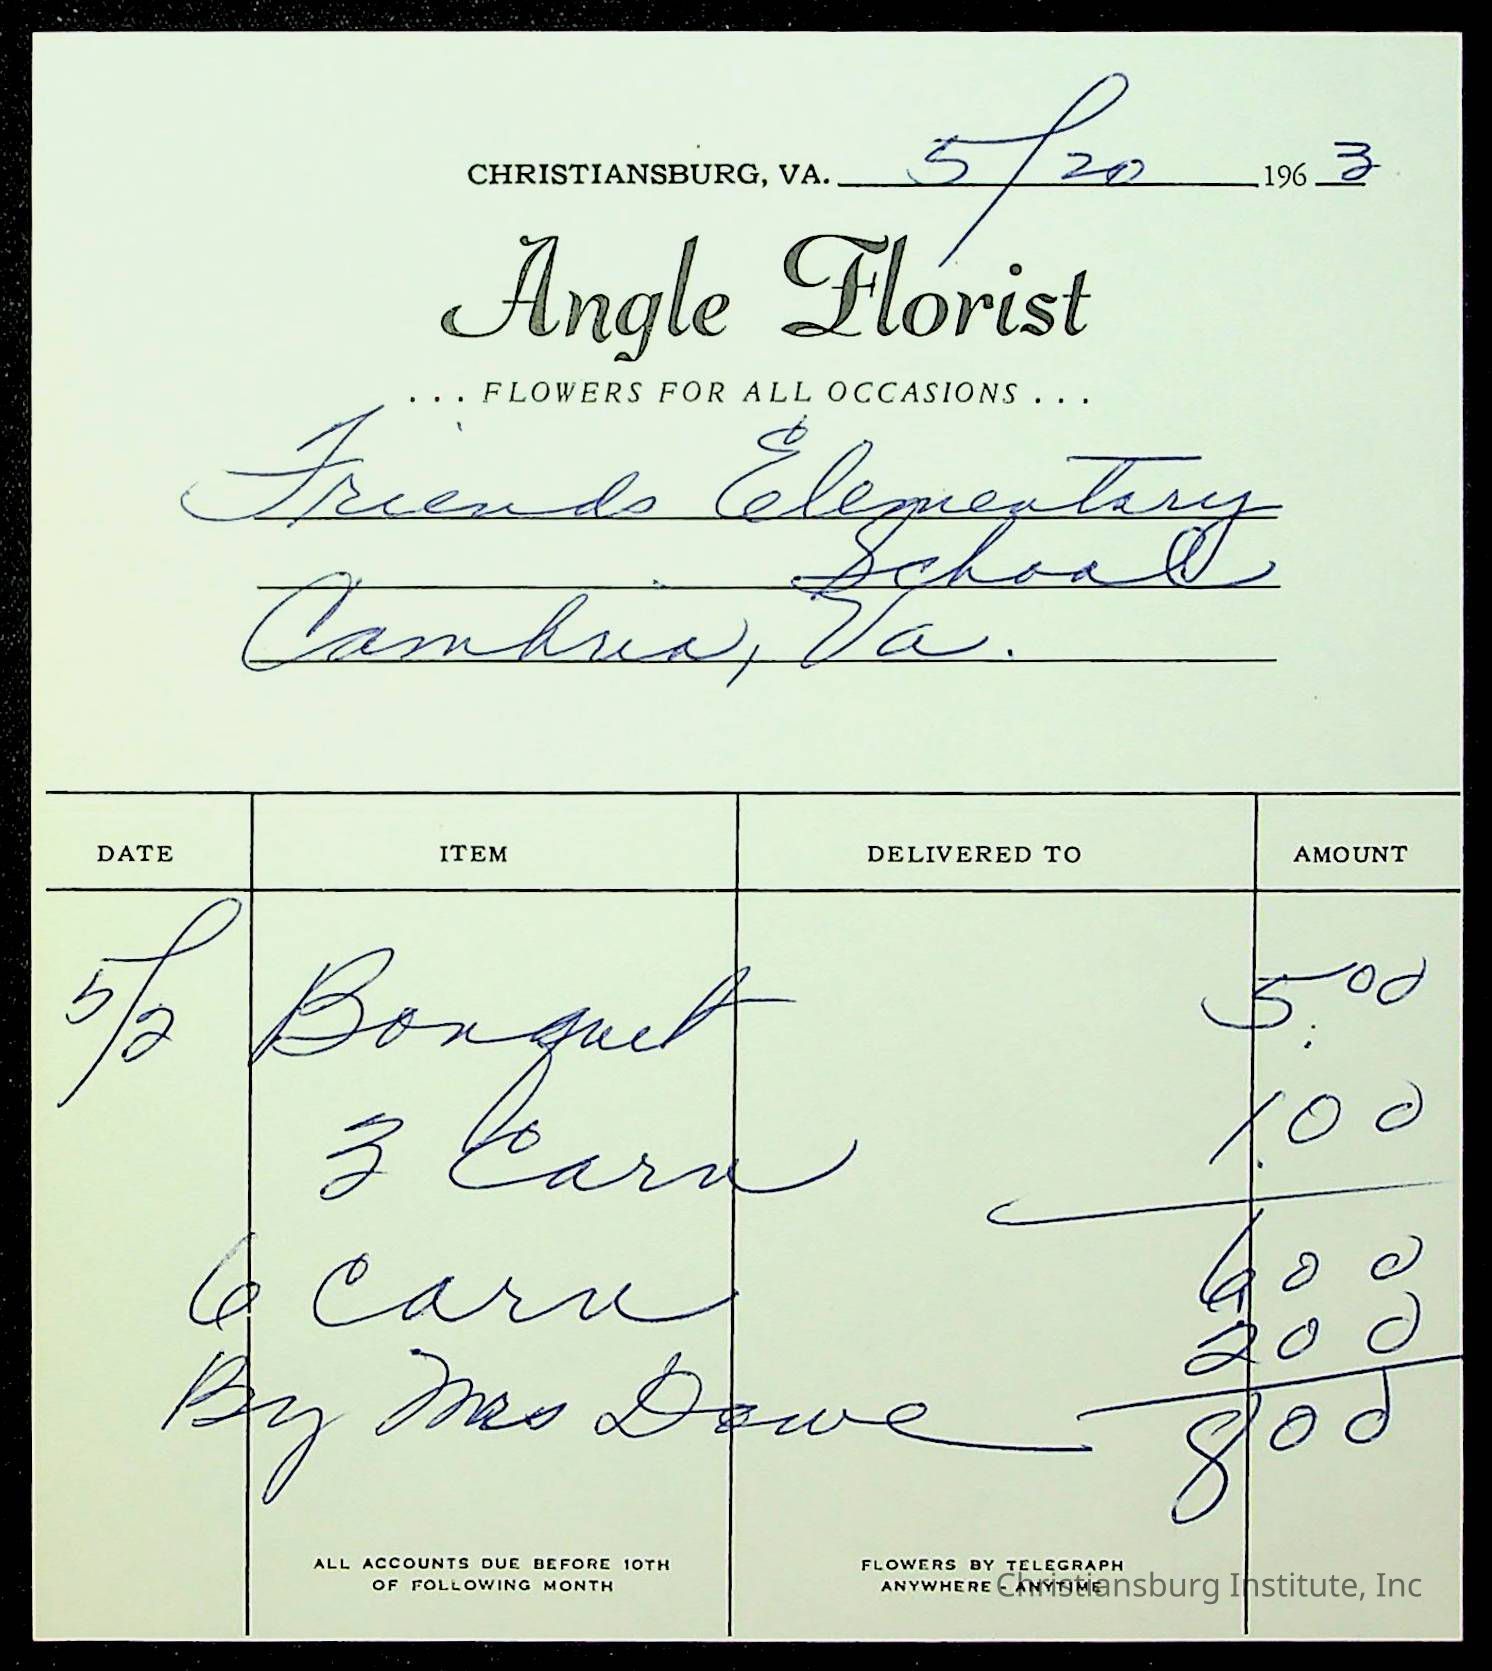 CHRISTIANSBURG, VA. 5/20 1963
Angle Florist
... FLOWERS FOR ALL OCCASIONS ...
Friends Elementary
School
Cambria, Va.
DATE ITEM DELIVERED TO AMOUNT
5/2 Bouquet 5.00
3 Carn 1.00
6 Carn 6 00
2 00
By Mrs Dowe 8 00
ALL ACCOUNTS DUE BEFORE 10TH
OF FOLLOWING MONTH
FLOWERS BY TELEGRAPH
ANYWHERE - ANYTIME
Christiansburg Institute, Inc